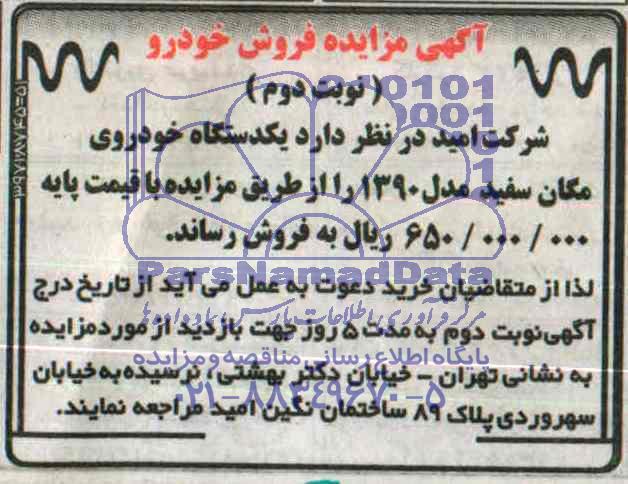 آگهی مزایده فروش خودرو
(نوبت دوم)
شرکت امید در نظر دارد یکدستگاه خودروی
مگان سفید مدل ۱۳۹۰ را از طریق مزایده با قیمت پایه
۶۵۰/۰۰۰/۰۰۰ ریال به فروش رساند.
لذا از متقاضیان خرید دعوت به عمل می آید از تاریخ درج
آگهی نوبت دوم به مدت ۵ روز جهت بازدید از مورد مزایده
به نشانی تهران - خیابان دکتر بهشتی، نرسیده به خیابان
سهروردی پلاک ۸۹ ساختمان نگین امید مراجعه نمایند.
ParsNamadData
مرکز فرآوری اطلاعات پارس نماد داده ها
پایگاه اطلاع رسانی مناقصه و مزایده
۰۲۱-۸۸۳۴۹۶۷۰-۵